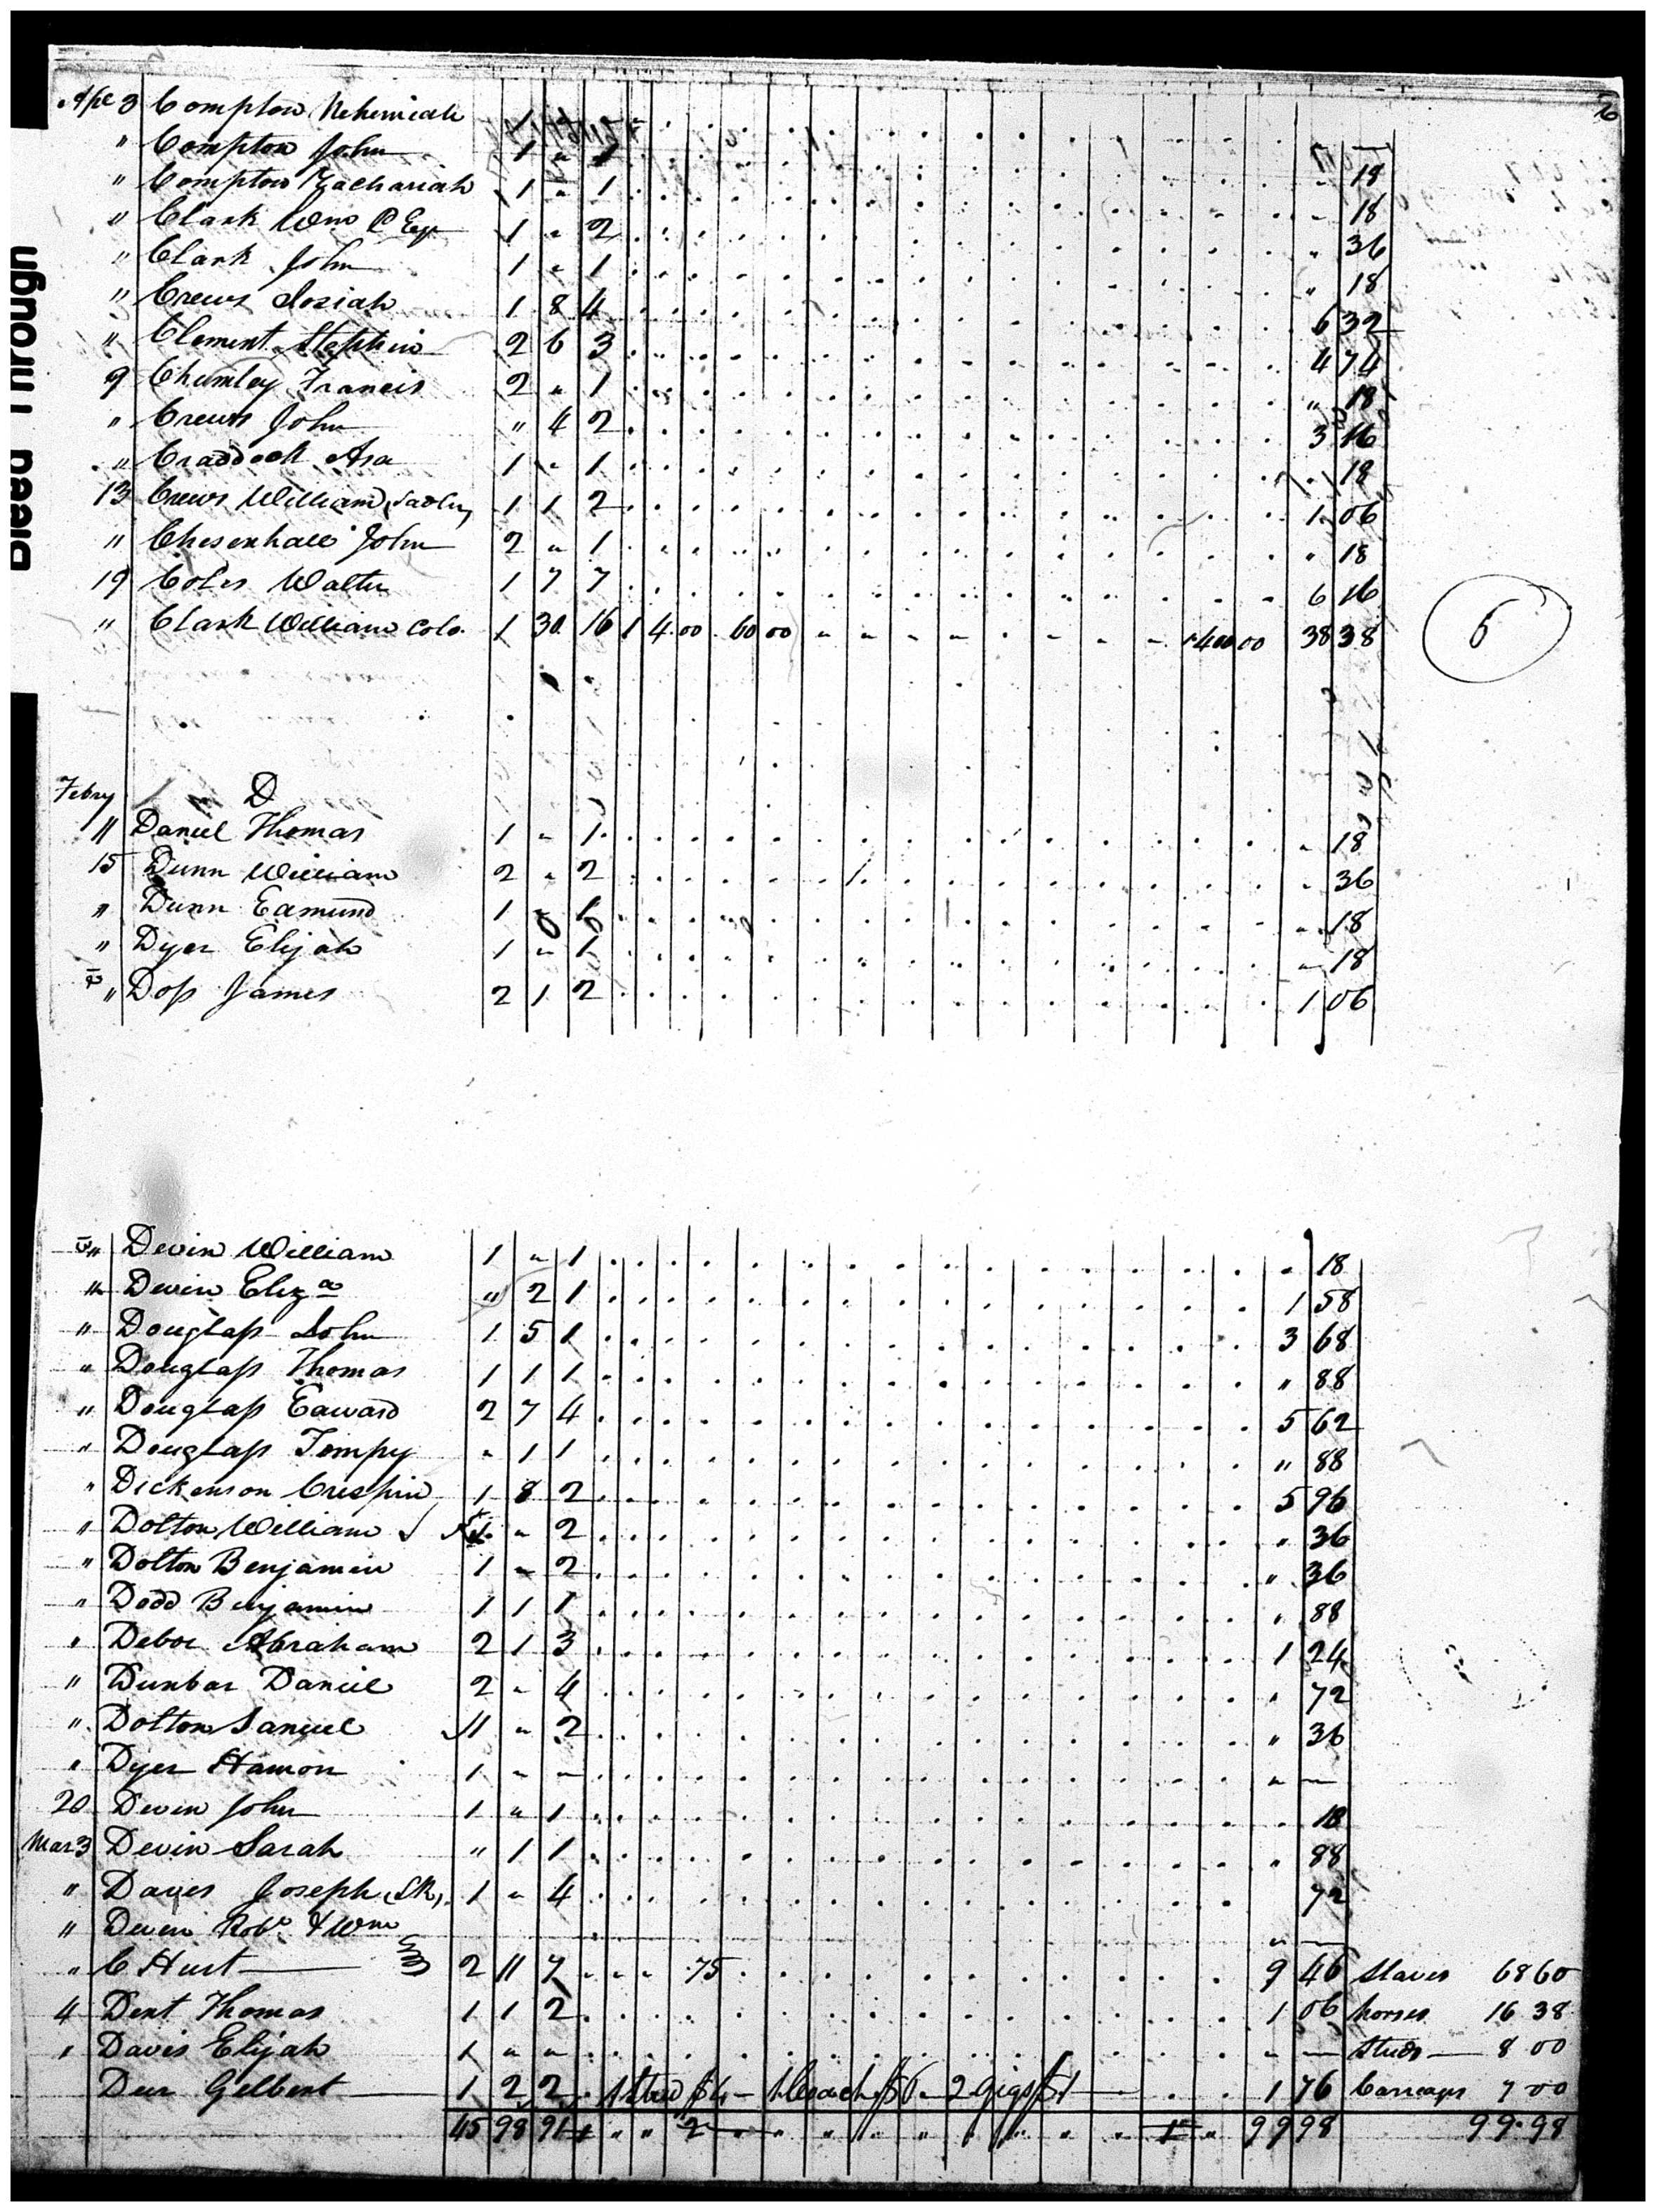 Deed Through
6
Apl 3 Compton Nehemiah 1
" Compton John 1 " 1 18
" Compton Zachariah 1 " 1 " 18
" Clark Wm C Esq 1 " 2 " 36
" Clark John 1 " 1 " 18
" Crews Josiah 1 8 4 6 32
" Clement Stephen 2 6 3 4 74
9 Chumley Francis 2 " 1 " 18
" Crews John " 4 2 3 16
" Craddock Asa 1 " 1 " 18
13 Crews William Sadler 1 1 2 1 06
" Chesenhall John 2 " 1 " 18
19 Coles Walter 1 7 7 6 16
" Clark William Colo. 1 30 16 1 4.00 60 00 400 00 38 38
6
Febry D
11 Daniel Thomas 1 " 1 " 18
15 Dunn William 2 " 2 " 36
" Dunn Edmund 1 " 1 " 18
" Dyer Elijah 1 " 1 " 18
" Doss James 2 1 2 1 06
" Devin William 1 " 1 " 18
" Devin Eliza " 2 1 1 58
" Douglass John 1 5 1 3 68
" Douglass Thomas 1 1 1 " 88
" Douglass Edward 2 7 4 5 62
" Douglass Tempy " 1 1 " 88
" Dickenson Crespin 1 8 2 5 96
" Dolton William 1 " 2 " 36
" Dolton Benjamin 1 " 2 " 36
" Dodd Benjamin 1 1 1 " 88
" Deboe Abraham 2 1 3 1 24
" Dunbar Daniel 2 " 4 " 72
" Dolton Samuel 1 " 2 " 36
" Dyer Hamon 1 " " " —
20 Deven John 1 " 1 " 18
Mar 3 Devin Sarah " 1 1 " 88
" Daves Joseph (SR) 1 " 4 72
" Deven Robt & Wm " —
" C Hurt 2 11 7 .75 9 46 Slaves 68 60
4 Dent Thomas 1 1 2 1 06 horses 16 38
" Davis Elijah 1 " " " — Studs 8 00
Dear Gilbert 1 2 2 1 Stud $4 — 1 Coach $6 — 2 gigs $1 1 76 Carriages 7 00
45 98 91 2 99 98 99.98